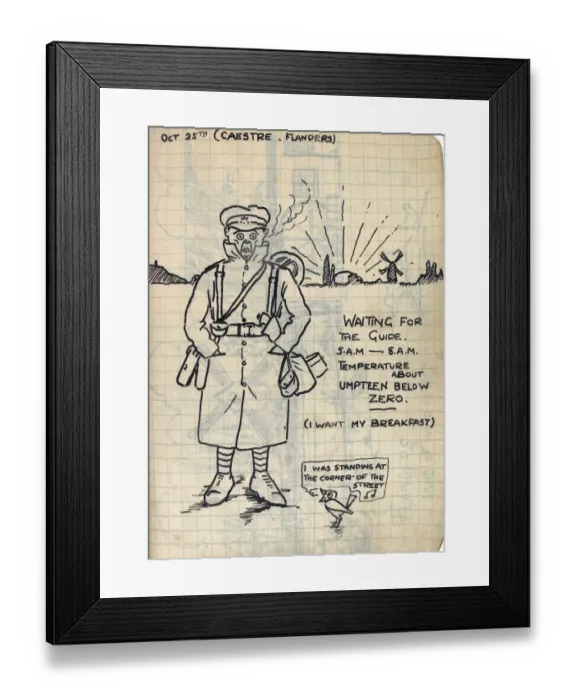 OCT 25TH (CAESTRE. FLANDERS)
WAITING FOR
THE GUIDE.
5.A.M — 8.A.M.
TEMPERATURE
ABOUT
UMPTEEN BELOW
ZERO.
(I WANT MY BREAKFAST)
I WAS STANDING AT
THE CORNER OF THE
STREET